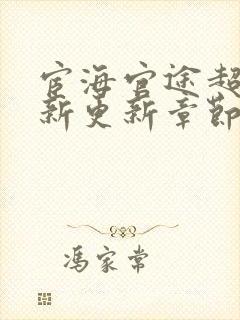 宦海官途超
新更新章节
冯家常